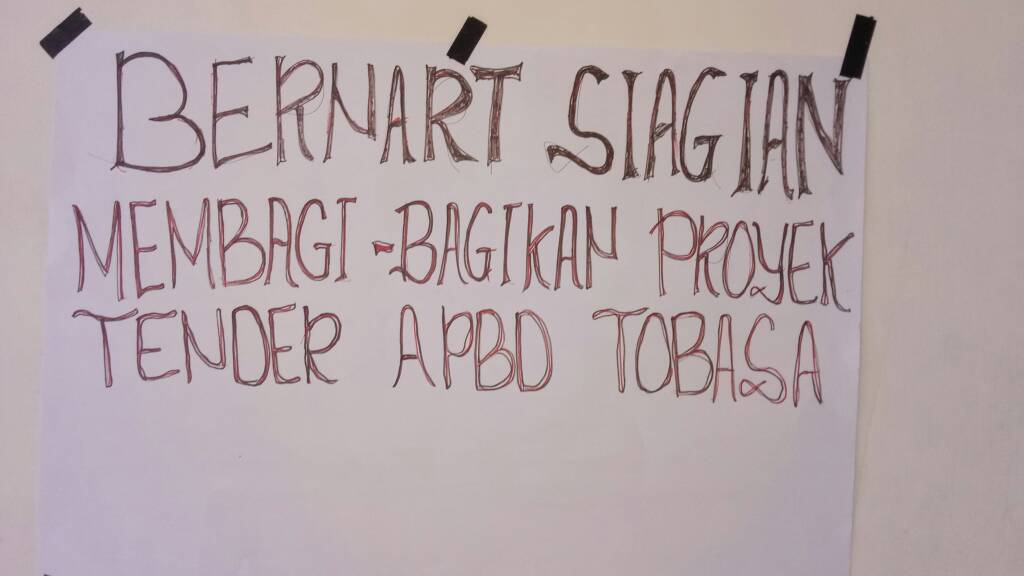 BERNART SIAGIAN
MEMBAGI-BAGIKAN PROYEK
TENDER APBD TOBASA